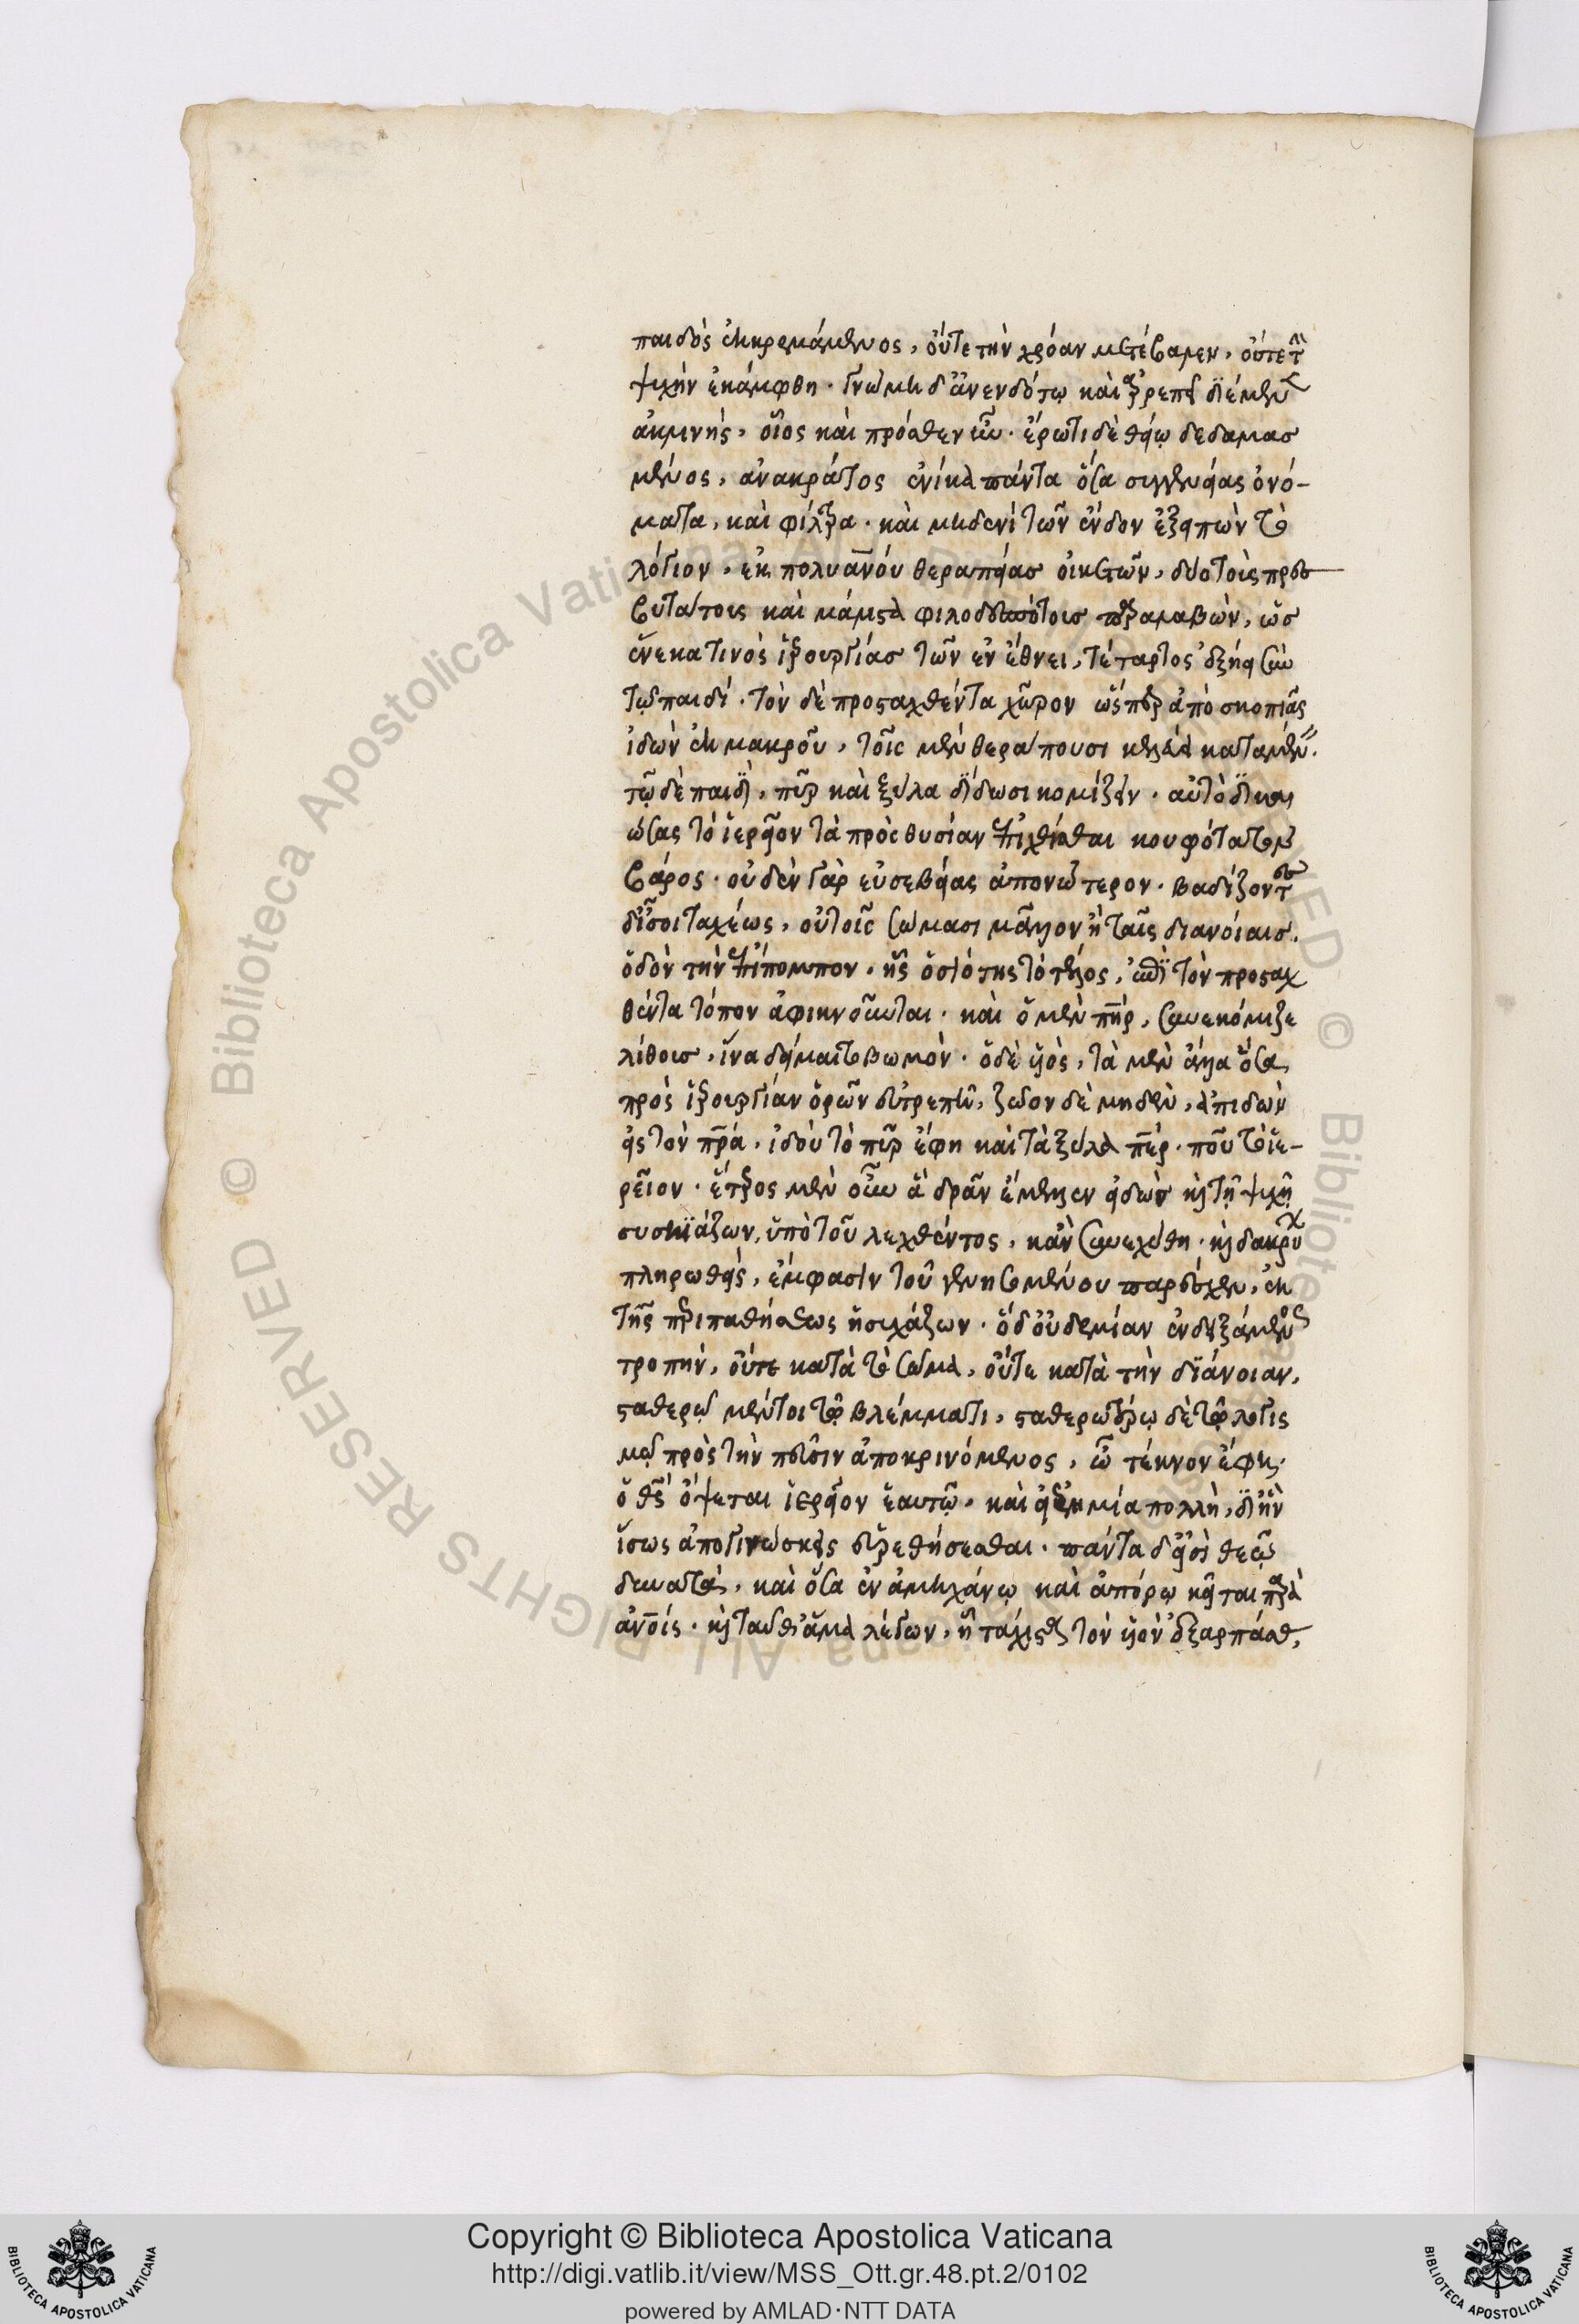 παιδὸς ἐκκρεμάμενος, οὔτε τὴν χρόαν μετέβαλεν, οὔτε τὴν
ψυχὴν ἐκάμφθη· γνώμῃ δ' ἀνενδότῳ καὶ ἀρρεπεῖ διέμενεν
ἀκλινὴς, οἷος καὶ πρόσθεν ἦν· ἔρωτι δὲ θείῳ δεδαμασ
μένος, ἀνακράτος ἐνίκα πάντα ὅσα συγγενείας ὀνό-
ματα, καὶ φίλτρα· καὶ μηδενὶ τῶν ἔνδον ἐξειπὼν τὸ
λόγιον, ἐκ πολυανου θεραπείας οἰκετῶν, δύο τοὺς πρεσ
βυτάτους καὶ μάλιστα φιλοδεσπότους παραλαβὼν, ὡς
ἕνεκα τινὸς ἱερουργίας τῶν ἐν ἔθνει, τέταρτος ἐξῄει σὺν
τῷ παιδί· τὸν δὲ προσταχθέντα χῶρον ὥσπερ ἀπὸ σκοπιᾶς
ἰδὼν ἐκ μακροῦ, τοῖς μὲν θεράπουσι κελεύει καταμένειν·
τῷ δὲ παιδὶ, πῦρ καὶ ξύλα δίδωσι κομίζειν· αὐτὸ δικαι
ώσας τὸ ἱερεῖον τὰ πρὸς θυσίαν ἐπηχθίσθαι κουφότατον
βάρος· οὐδὲν γὰρ εὐσεβείας ἀπονώτερον· βαδίζοντες
δ' ἴσοι ταχέως, οὐ τοῖς σώμασι μᾶλλον ἢ ταῖς διανοίαις,
ὁδὸν τὴν ἐπίτομον, ἧς ὁσιότης τὸ τέλος, ἐπὶ τὸν προσταχ
θέντα τόπον ἀφικνοῦνται· καὶ ὁ μὲν πηρ, συνεκόμιζε
λίθους, ἵνα δείμαιτο βωμόν· ὁ δὲ υἱὸς, τὰ μὲν ἄλλα ὅσα
πρὸς ἱερουργίαν ὁρῶν εὐτρεπῆ, ζῶον δὲ μηδὲν, ἀπιδὼν
εἰς τὸν πρα, ἰδοὺ τὸ πῦρ ἔφη καὶ τὰ ξύλα περ· ποῦ τὸ ἱε-
ρεῖον· ἕτερος μὲν οὖν ἃ δρᾶν ἔμελλεν εἰδὼς καὶ τῇ ψυχῇ
συσκιάζων, ὑπὸ τοῦ λεχθέντος, κἂν συνεχύθη· καὶ δακρύων
πληρωθεὶς, ἔμφασιν τοῦ γενησομένου παρέσχεν, ἐκ
τῆς περιπαθήσεως ἡσυχάζων· ὁ δ' οὐδεμίαν ἐνδεξάμενος
τροπὴν, οὔτε κατὰ τὸ σῶμα, οὔτε κατὰ τὴν διάνοιαν,
σταθερῷ μέντοι τῷ βλέμματι, σταθερωτέρῳ δὲ τῷ λογισ
μῷ πρὸς τὴν πεῦσιν ἀποκρινόμενος, ὦ τέκνον ἔφη·
ὁ θς ὄψεται ἱερεῖον ἑαυτῷ, καὶ ἐν ἐρημίᾳ πολλῇ, δι' ἣν
ἴσως ἀπογινώσκεις εὑρεθήσεσθαι· πάντα δ' ἴσθι θεῷ
δυνατὰ, καὶ ὅσα ἐν ἀμηχάνῳ καὶ ἀπόρῳ κεῖται παρὰ
ἀνοις· καὶ ταῦθ' ἅμα λέγων, ᾗ τάχιστα τὸν υἱὸν ἐξαρπάσας,
Copyright © Biblioteca Apostolica Vaticana
http://digi.vatlib.it/view/MSS_Ott.gr.48.pt.2/0102
powered by AMLAD·NTT DATA